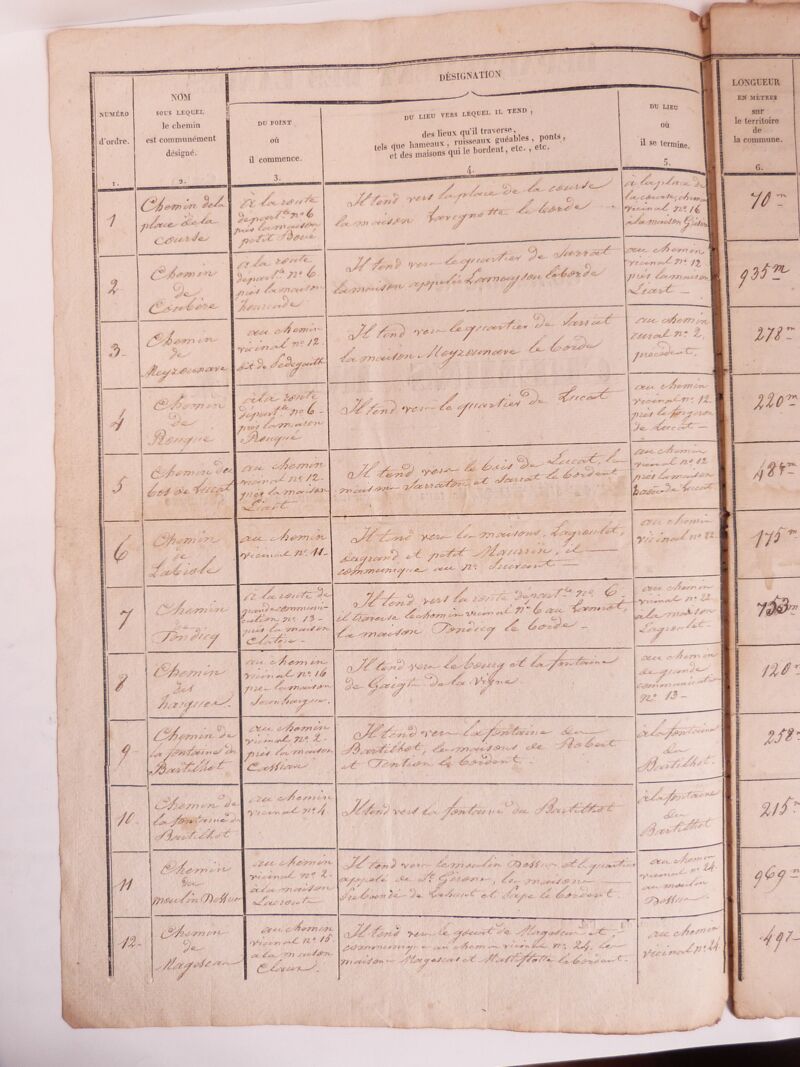 DÉSIGNATION
NUMÉRO
d'ordre.
1.
NOM
SOUS LEQUEL
le chemin
est communément
désigné.
2.
DU POINT
où
il commence.
3.
DU LIEU VERS LEQUEL IL TEND,
des lieux qu'il traverse,
tels que hameaux, ruisseaux guéables, ponts,
et des maisons qui le bordent, etc., etc.
4.
DU LIEU
où
il se termine.
5.
LONGUEUR
EN MÈTRES
sur
le territoire
de
la commune.
6.
1
Chemin de la
place de la
course
à la route
départ.le n° 6
près la maison
petit
Il tend vers la place de la course
la maison le borde
à la place de
la course, chemin
vicinal n° 16
à la maison
70 m
2
Chemin
de
Coubère
à la route
départ.le n° 6
près la maison
Il tend vers le quartier de Sarrat
la maison appelée le borde
au chemin
vicinal n° 12
près la maison
Liart
935 m
3
Chemin
de
Meyzounave
au chemin
vicinal n° 12
dit de
Il tend vers le quartier de Sarrat
la maison Meyzounave le borde
au chemin
rural n° 2
précédent.
278 m
4
Chemin
de
Rouqué
à la route
départ.le n° 6
près la maison
Rouqué
Il tend vers le quartier de Lucat
au chemin
vicinal n° 12
près le forgeron
de Lucat
220 m
5
Chemin du
bos de Lucat
au chemin
vicinal n° 12
près la maison
Liart
Il tend vers le bois de Lucat, la
maison Sarraton et Sarrat le bordent
au chemin
vicinal n° 12
près la maison
de Lucat
484 m
6
Chemin
de
Labiole
au chemin
vicinal n° 11.
Il tend vers les maisons Lagroulet,
Lagrand et petit Mourrin, et
communique au n° suivant
au chemin
vicinal n° 22.
175 m
7
Chemin
de
Tendicq
à la route de
grande communi-
cation n° 13
près la maison
Il tend vers la route départ.le n° 6.
il traverse le chemin vicinal n° 6 au
la maison Tendicq le borde
au chemin
vicinal n° 22
à la maison
Lagroulet
753 m
8
Chemin
des
hargues.
au chemin
vicinal n° 16
près la maison
Il tend vers le bourg et la fontaine
de de la vigne
au chemin
de grande
communication
n° 13
120 m
9
Chemin de
la fontaine du
Bartilhot
au chemin
vicinal n° 2.
près la maison
Cassiau
Il tend vers la fontaine du
Bartilhot, les maisons de Robert
et Tention le bordent.
à la fontaine
du
Bartilhot.
258 m
10.
Chemin de
la fontaine du
Bartilhot
au chemin
vicinal n° 4.
Il tend vers la fontaine du Bartilhot
à la fontaine
du
Bartilhot
215 m
11
Chemin
du
moulin Dessus
au chemin
vicinal n° 2.
à la maison
Lacrout
Il tend vers le moulin Dessus et le quartier
appelé de St Girons, les maisons
de et Pape le bordent.
au chemin
vicinal n° 24.
au moulin
Dessus
969 m
12.
Chemin
de
Magescau
au chemin
vicinal n° 15
à la maison
Il tend vers le gourt de Magescau et
communique au chemin vicinal n° 24. les
maisons Magescas et le bordent.
au chemin
vicinal n° 24
497